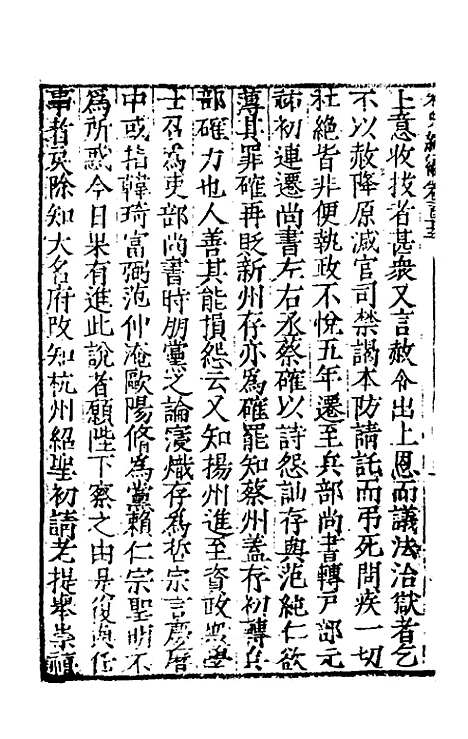 上意收拔者甚衆又言赦令出上恩而議法治獄者乞
不以赦降原减官司禁謁本防請託而弔死問疾一切
杜絶皆非便執政不恱五年遷至兵部尚書轉戸部元
祐初連遷尚書左右丞蔡確以詩怨訕存與范純仁欲
薄其罪確再貶新州存亦爲確罷知蔡州蓋存初薄兵
部確力也人善其能損怨云又知揚州進至資政殿學
士召爲吏部尚書時朋黨之論寖熾存爲哲宗言慶曆
中或指韓琦富弼范仲淹歐陽脩爲黨賴仁宗聖明不
爲所惑今日果有進此說者願陛下察之由是復與任
事者戾除知大名府改知杭州紹聖初請老提舉崇禧